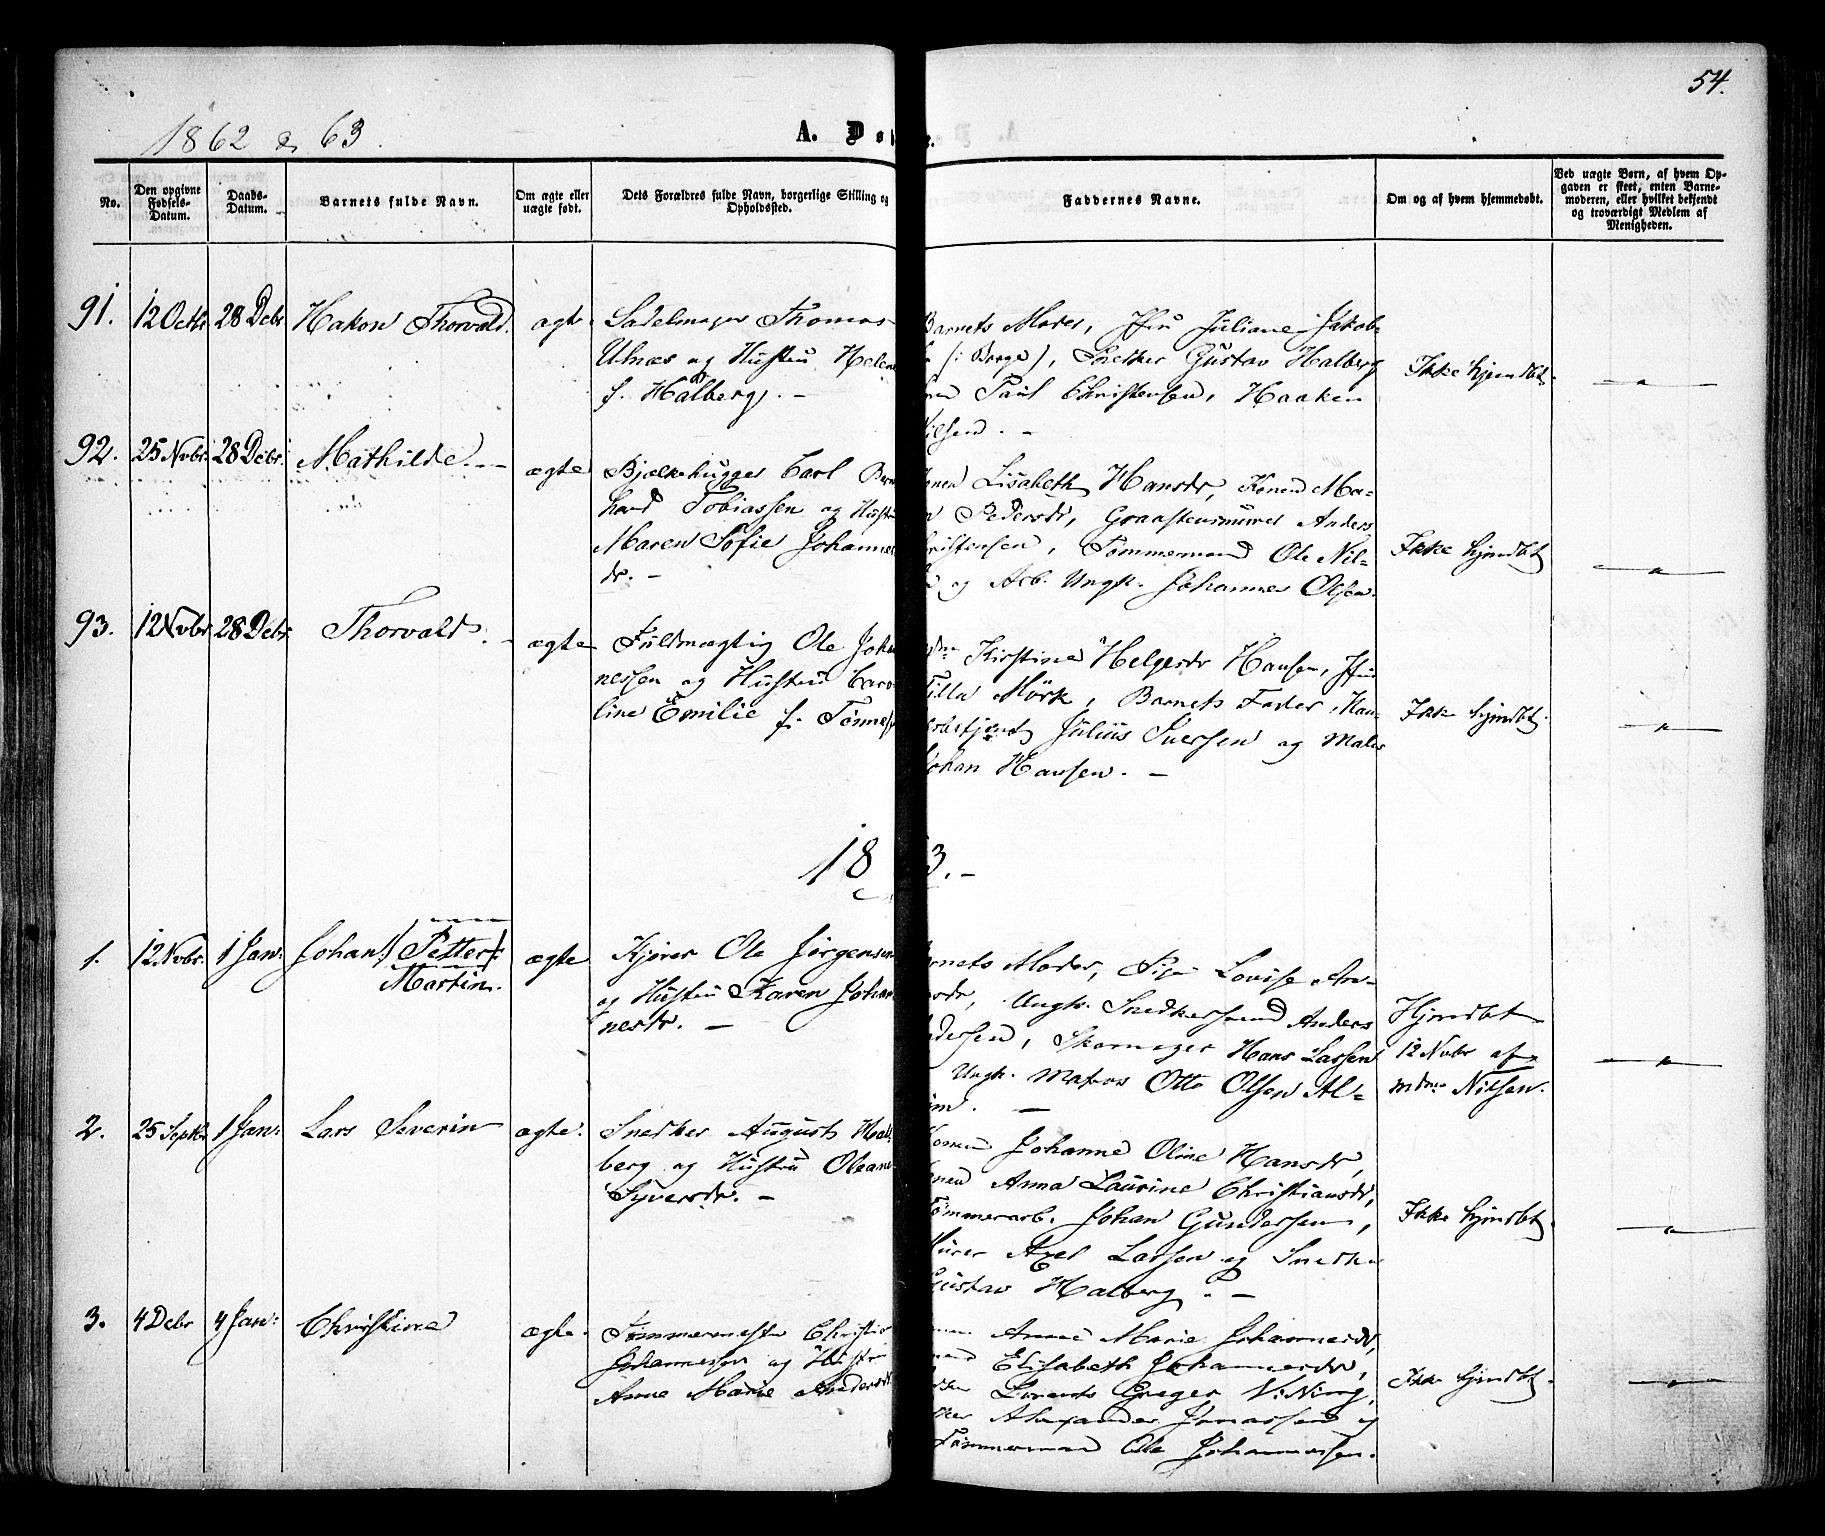 54.
1862 & 63.
A. Dø
e.
No.
Den opgivne Fødsels-Datum.
Daabs-Datum.
Barnets fulde Navn.
Om ægte eller uægte født.
Dets Forældres fulde Navn, borgerlige Stilling og Opholdssted.
Faddernes Navne.
Om og af hvem hjemmedøbt.
Ved uægte Børn, af hvem Opgaven er skeet, enten Barnemoderen, eller hvilket bekjendt og troværdigt Medlem af Menigheden.
91. 12 Octbr 28 Debr Hakon Thorvald. ægte
Sadelmager Thomas
Ulnæs og Hustru Helene
f. Halberg. –
Barnets Moder, Jfru Juliane Jakob-
(: Borge), Snedker Gustav Halberg
Paul Christensen, Haaken
Nilsen. –
Ikke hjemdbt.
92. 25 Novbr. 28 Debr. Mathilde. – ægte
Bjælkehugger Carl Bern
hard Tobiassen og Hustru
Maren Sofie Johannes
dr. –
Konen Lisabeth Hansdr, Konen Ma-
Pedersdr, Graastensmurer Anders
Christensen, Tømmermand Ole Nil-
og Arb. Ungk. Johannes Olsen.
Ikke hjmdbt
93. 12 Novbr 28 Debr. Thorvald. – ægte
Fuldmægtig Ole Joha
nessen og Hustru Caro
line Emilie f. Tønnes
Kirstine Helgesdr Hansen, Jfru
Tilla Mörk, Barnets Fader, Han-
delsbetjent Julius Iversen og Maler
Johan Hansen. –
Ikke hjmdbt.
18 3. –
1. 12 Novbr. 1 Jan: Johan /: Petter :/
Martin. ægte
Kjører Ole Jørgensen
og Hustru Karen Johan
nesdr. –
Barnets Moder, Pige Lovise An-
dersdr, Ungk. Snedkersvend Anders
Andersen, Skomager Hans Larsen
Ungk. Matros Otto Olsen Al-
Hjmdbt
12 Novbr af
Mdme Nilsen.
2. 25 Septbr 1 Jan: Lars Severin ægte.
Snedker August Hal
berg og Hustru Oleane
Syversdr. –
Konen Johanne Oline Hansdr,
Konen Anna Laurine Christiansdr,
Tømmerarb. Johan Gundersen,
Murer Axel Larsen og Snedker
Gustav Halberg. –
Ikke hjmdbt.
3. 4 Debr 4 Jan: Christine ægte.
Tømmermester Christian
Johannessen og Hustru
Anne Marie Andersdr
Anne Marie Johannesdr,
Elisabeth Johannesdr,
Lorents Greger
Alexander Jonassen og
Tømmermand Ole Johannessen.
Ikke hjmdbt.